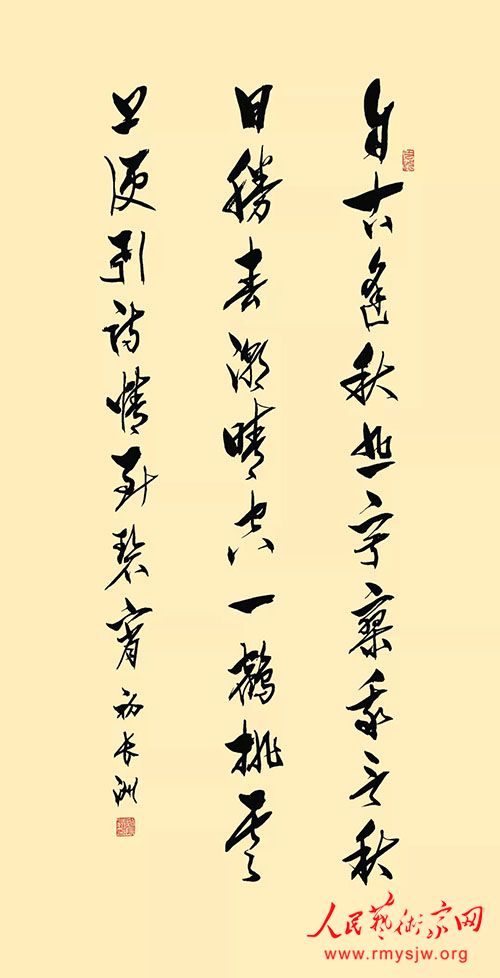 自古逢秋悲寂寥我言秋
日勝春潮晴空一鶴排雲
上便引诗情到碧霄 初长洲
人民藝術家网
www.rmysjw.org